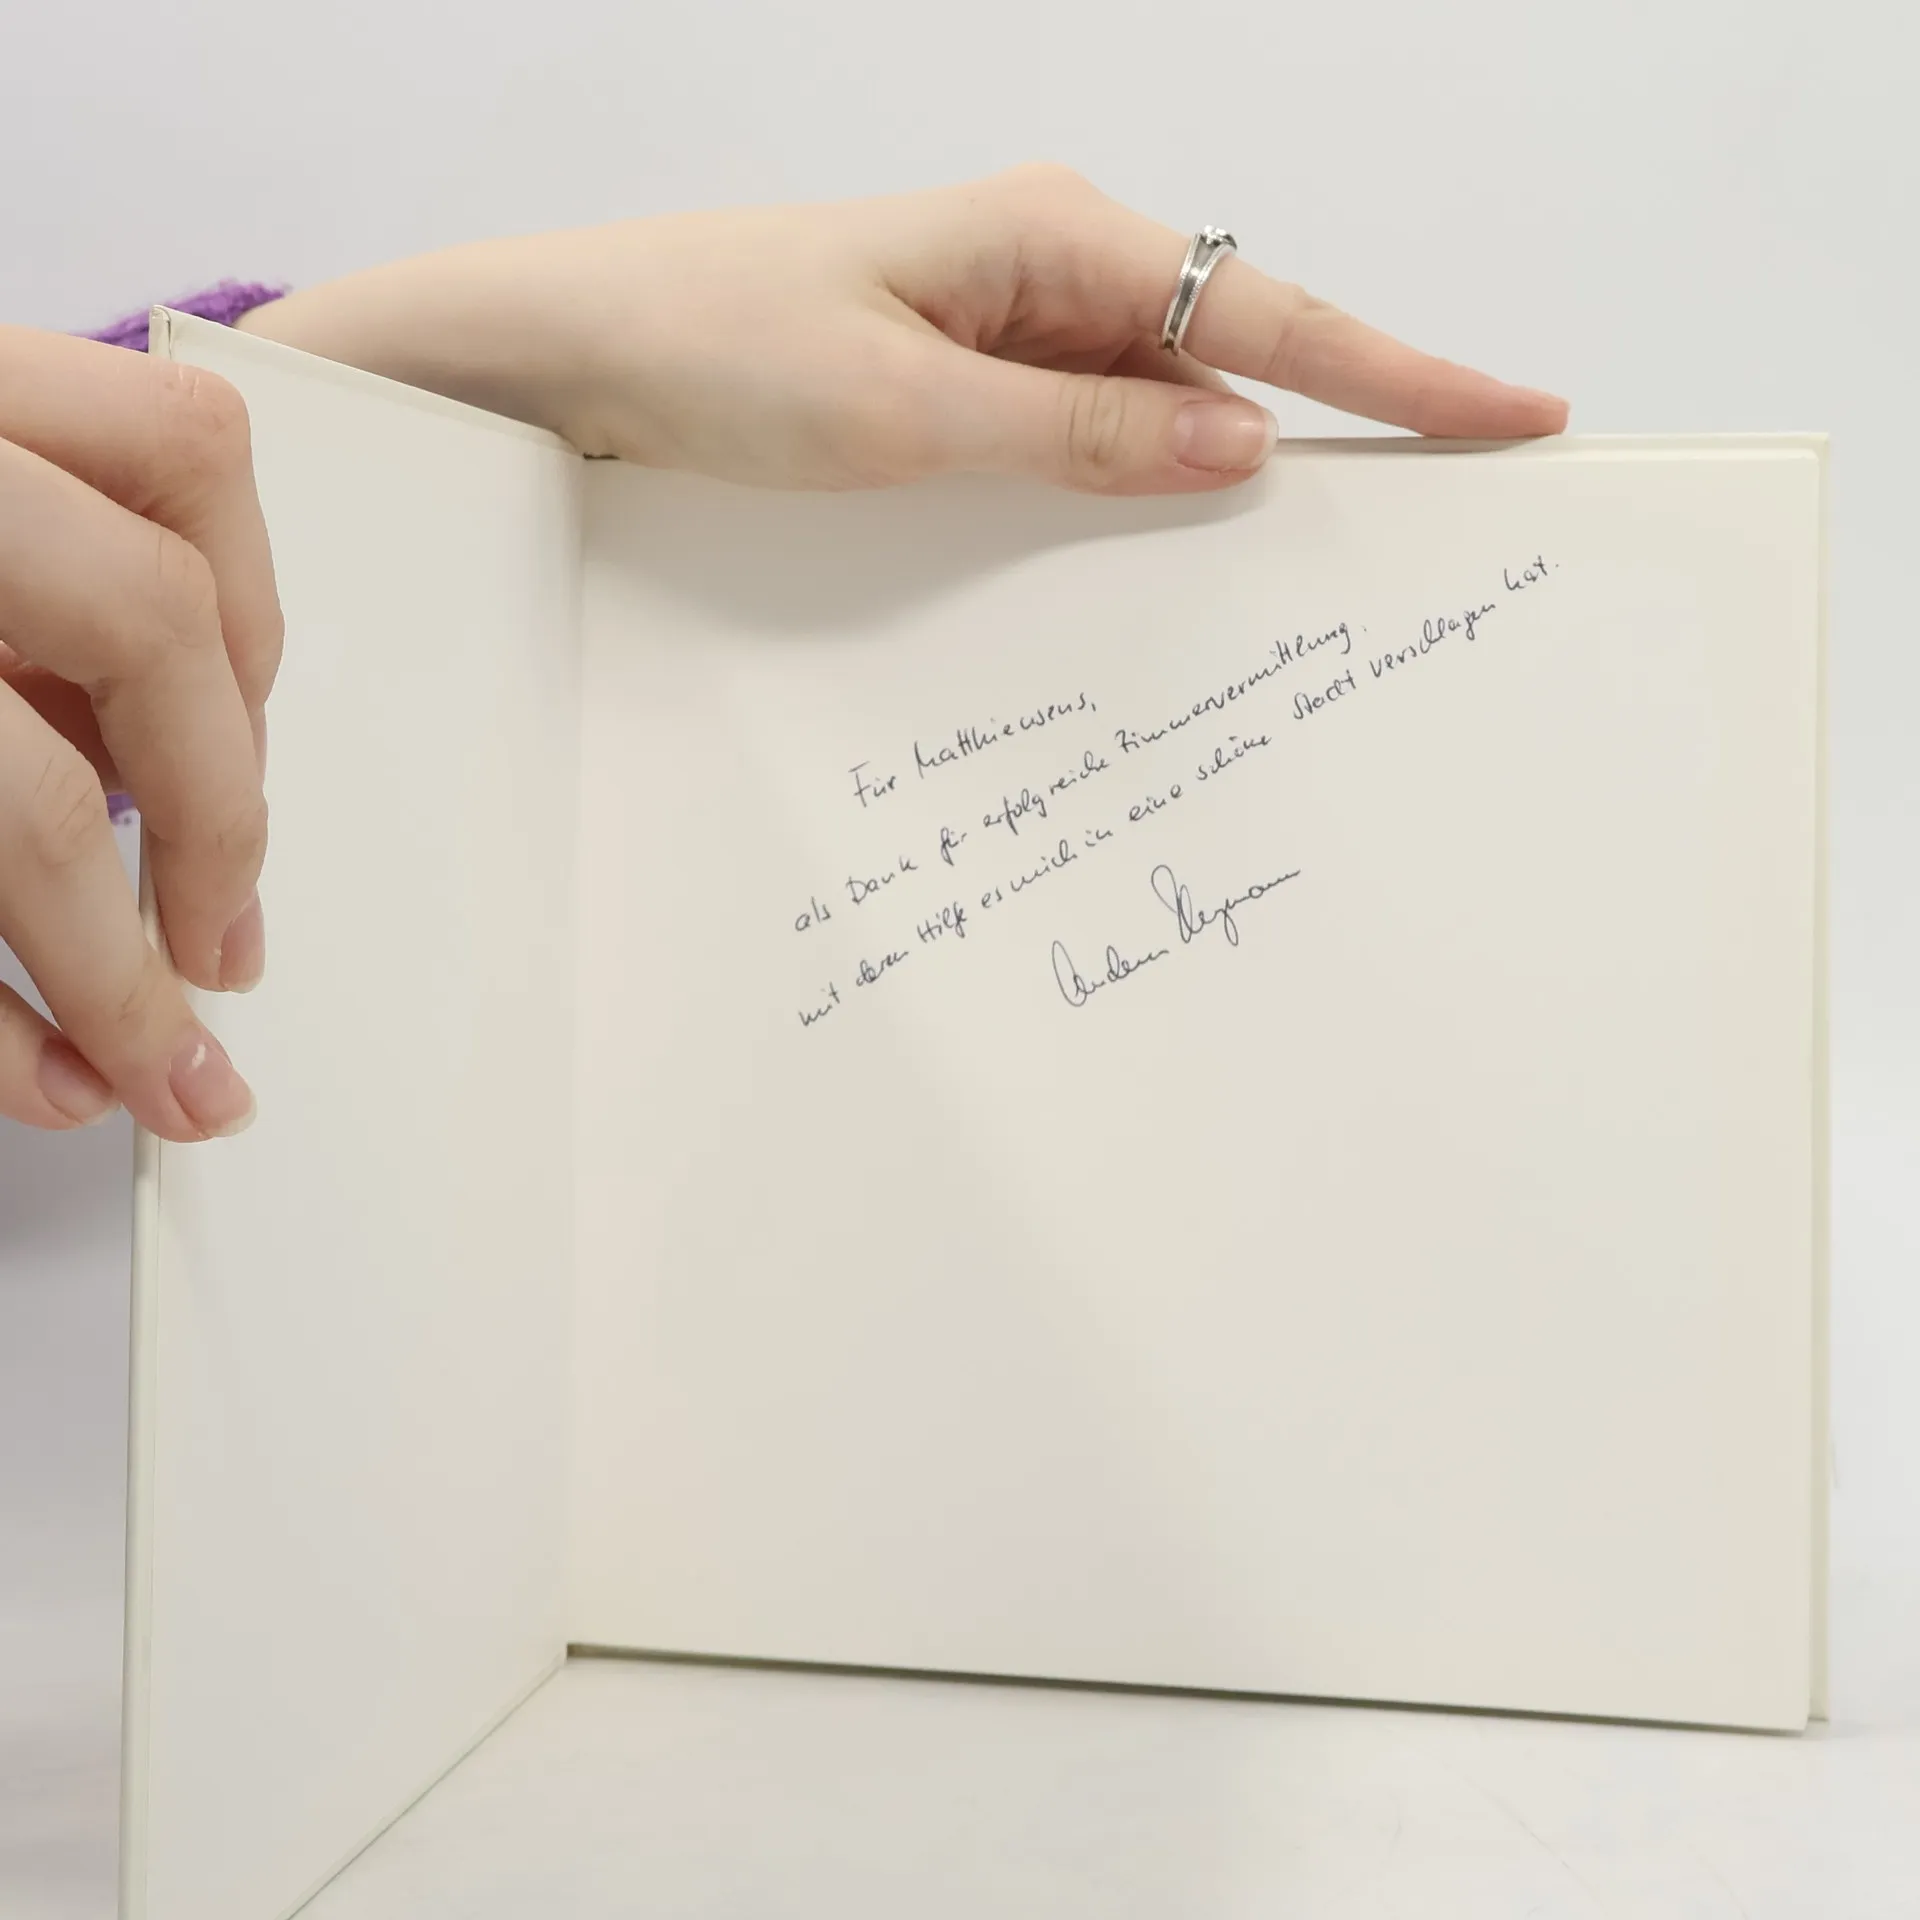 Für Matthiensens,
als Dank für erfolgreiche Zimmervermittlung.
mit deren Hilfe es mich in eine schöne Stadt verschlagen hat.